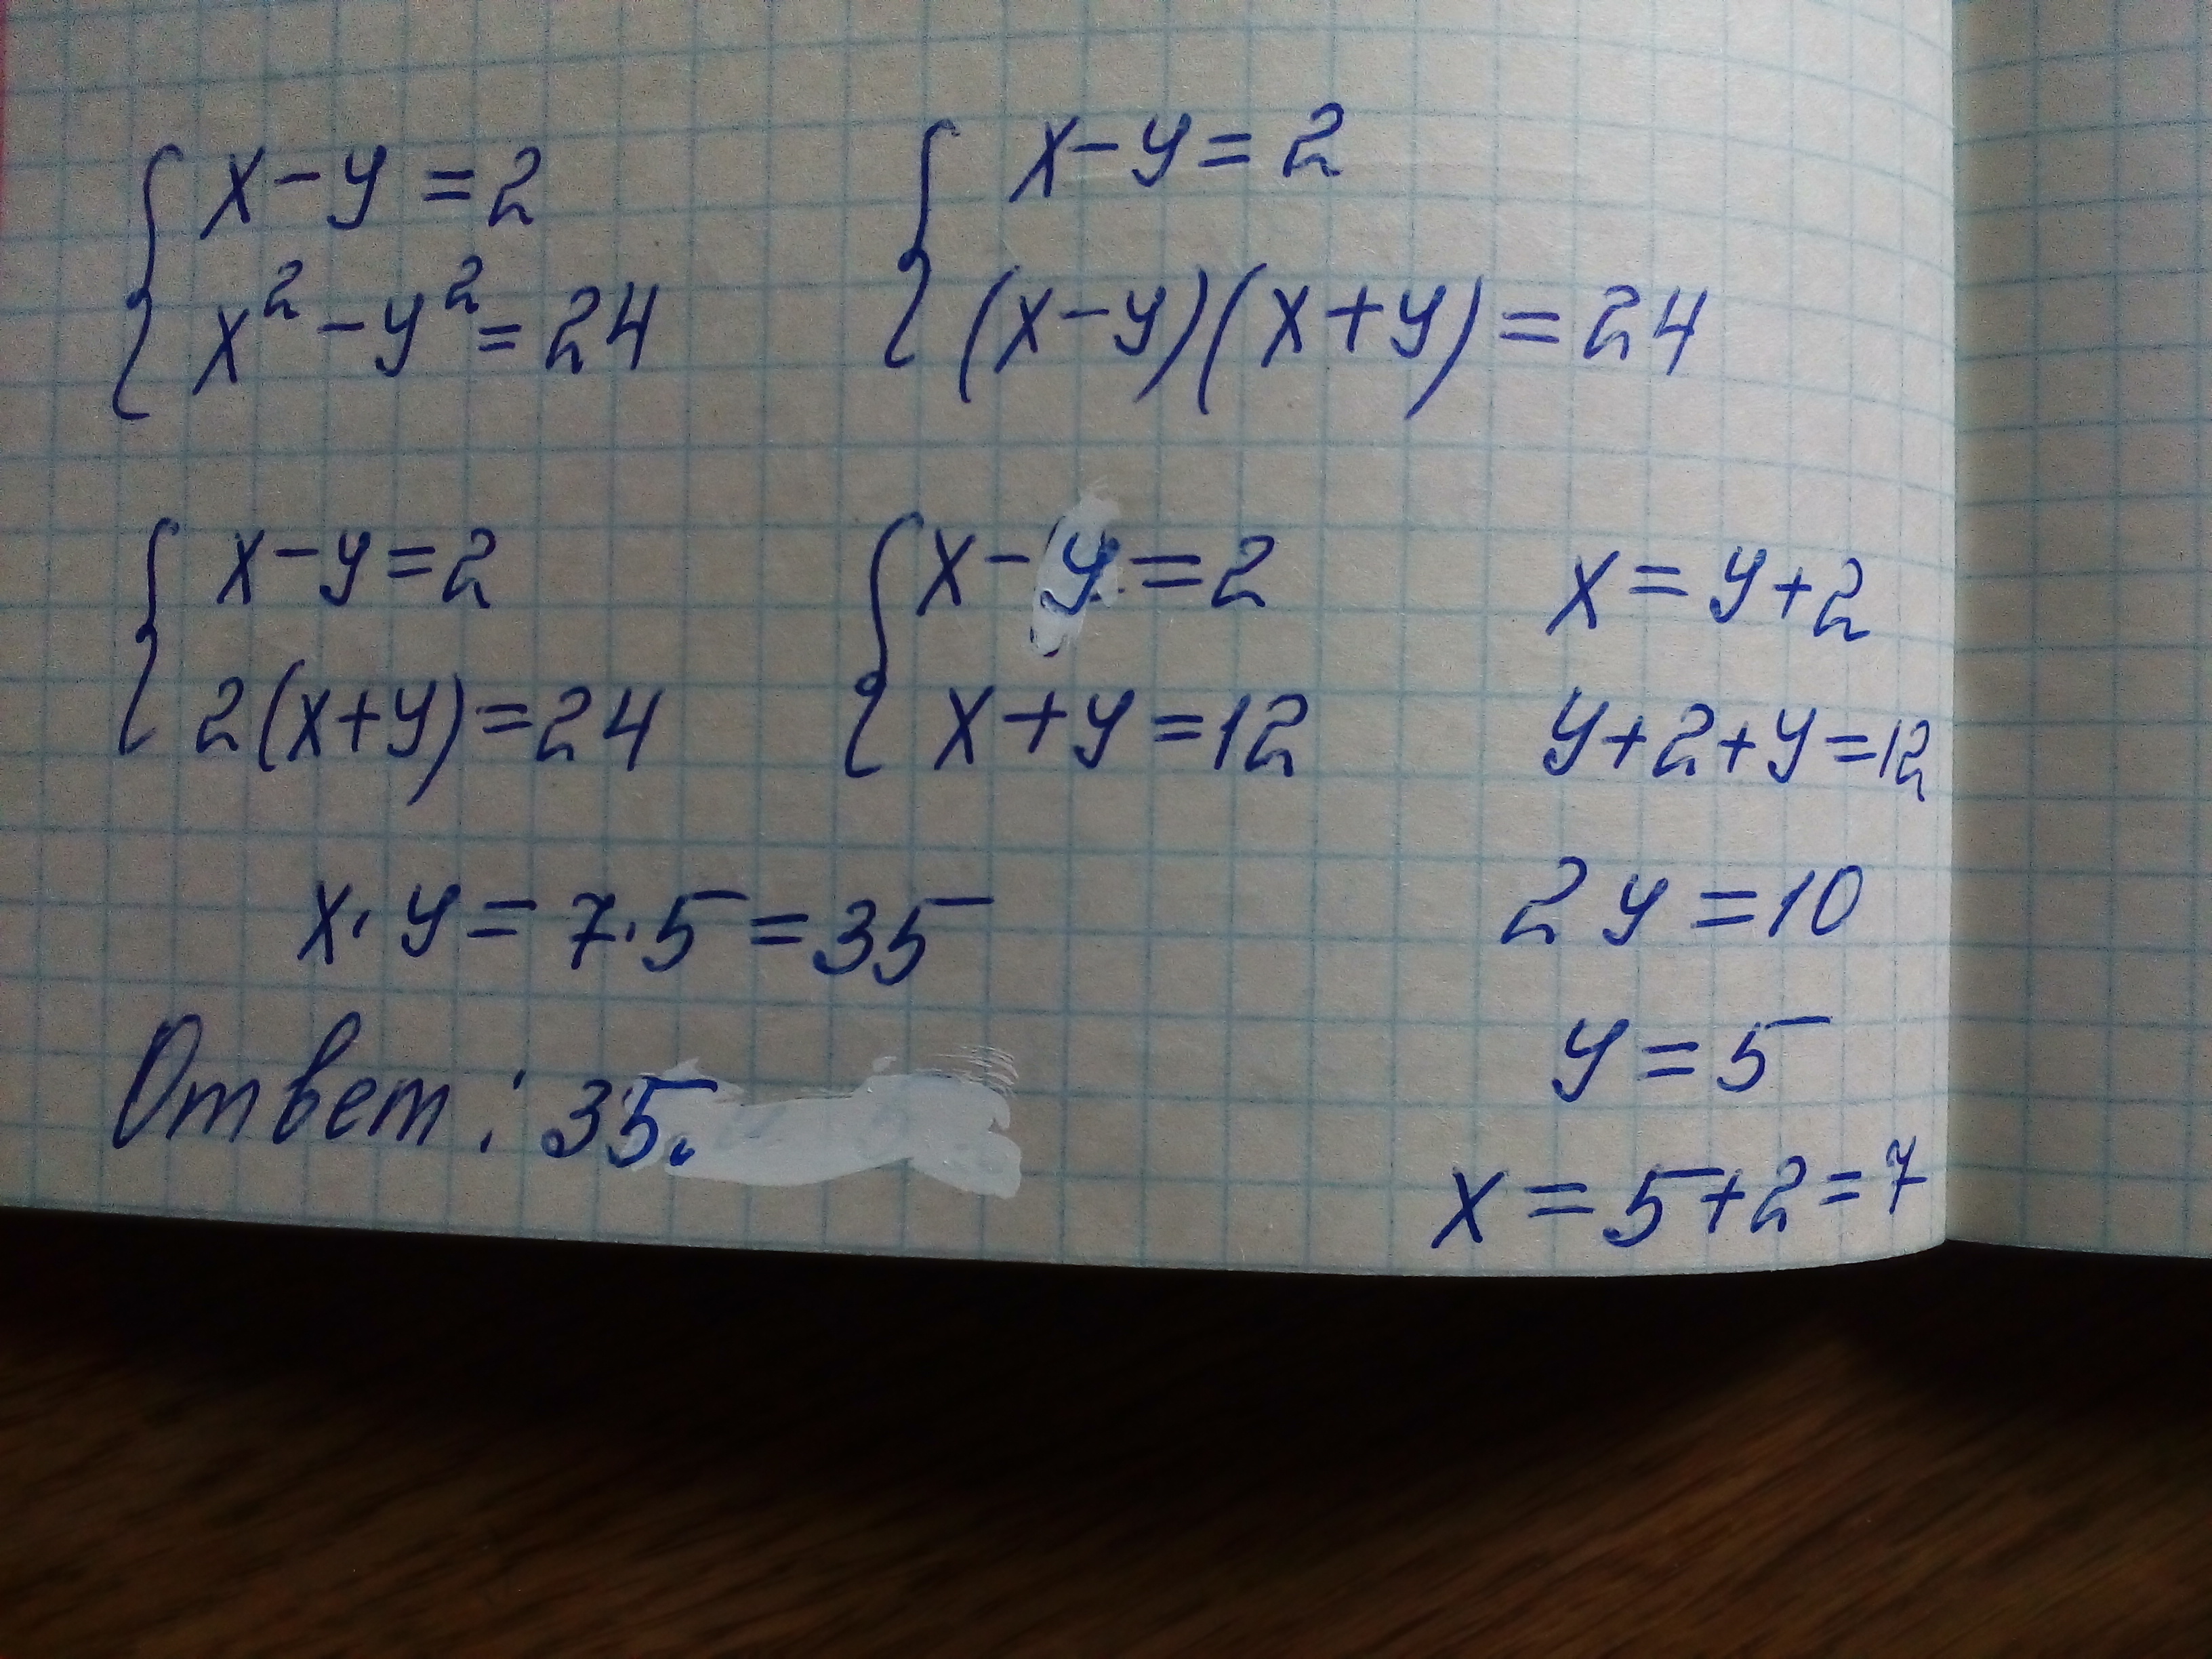 x-y=2
x²-y²=24
x-y=2
(x-y)(x+y)=24
x-y=2
2(x+y)=24
x-y=2
x+y=12
x=y+2
y+2+y=12
2y=10
y=5
x=5+2=7
x·y=7·5=35
Ответ: 35.